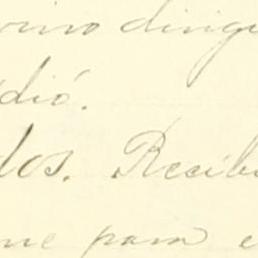 vino dirig
dió.
dos. Recib
ue para e